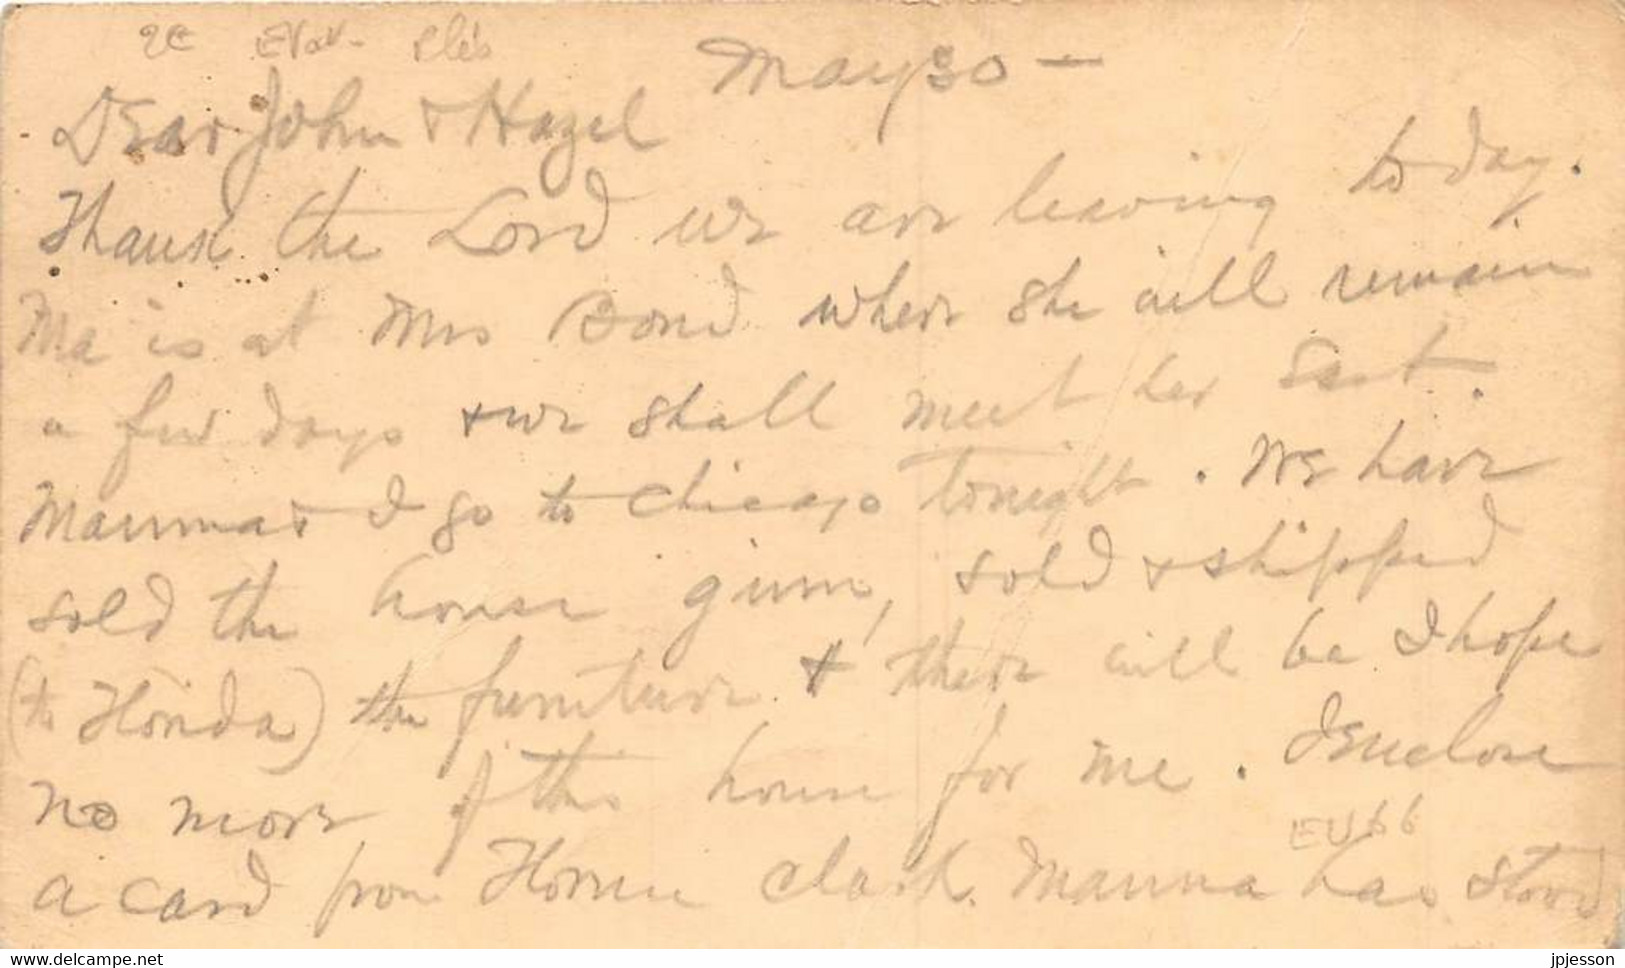 May 30 -
Dear John & Hazel
Thank the Lord we are leaving today.
Ma is at Mrs Bond where she will remain
a few days & we shall meet her Sat.
Mamma & I go to Chicago tonight. We have
sold the house, sold & shipped
(to Florida) the furniture & there will be I hope
no more of this house for me. I Enclose
a card from Clark. Mamma has stood
EU66
www.delcampe.net
jpjesson